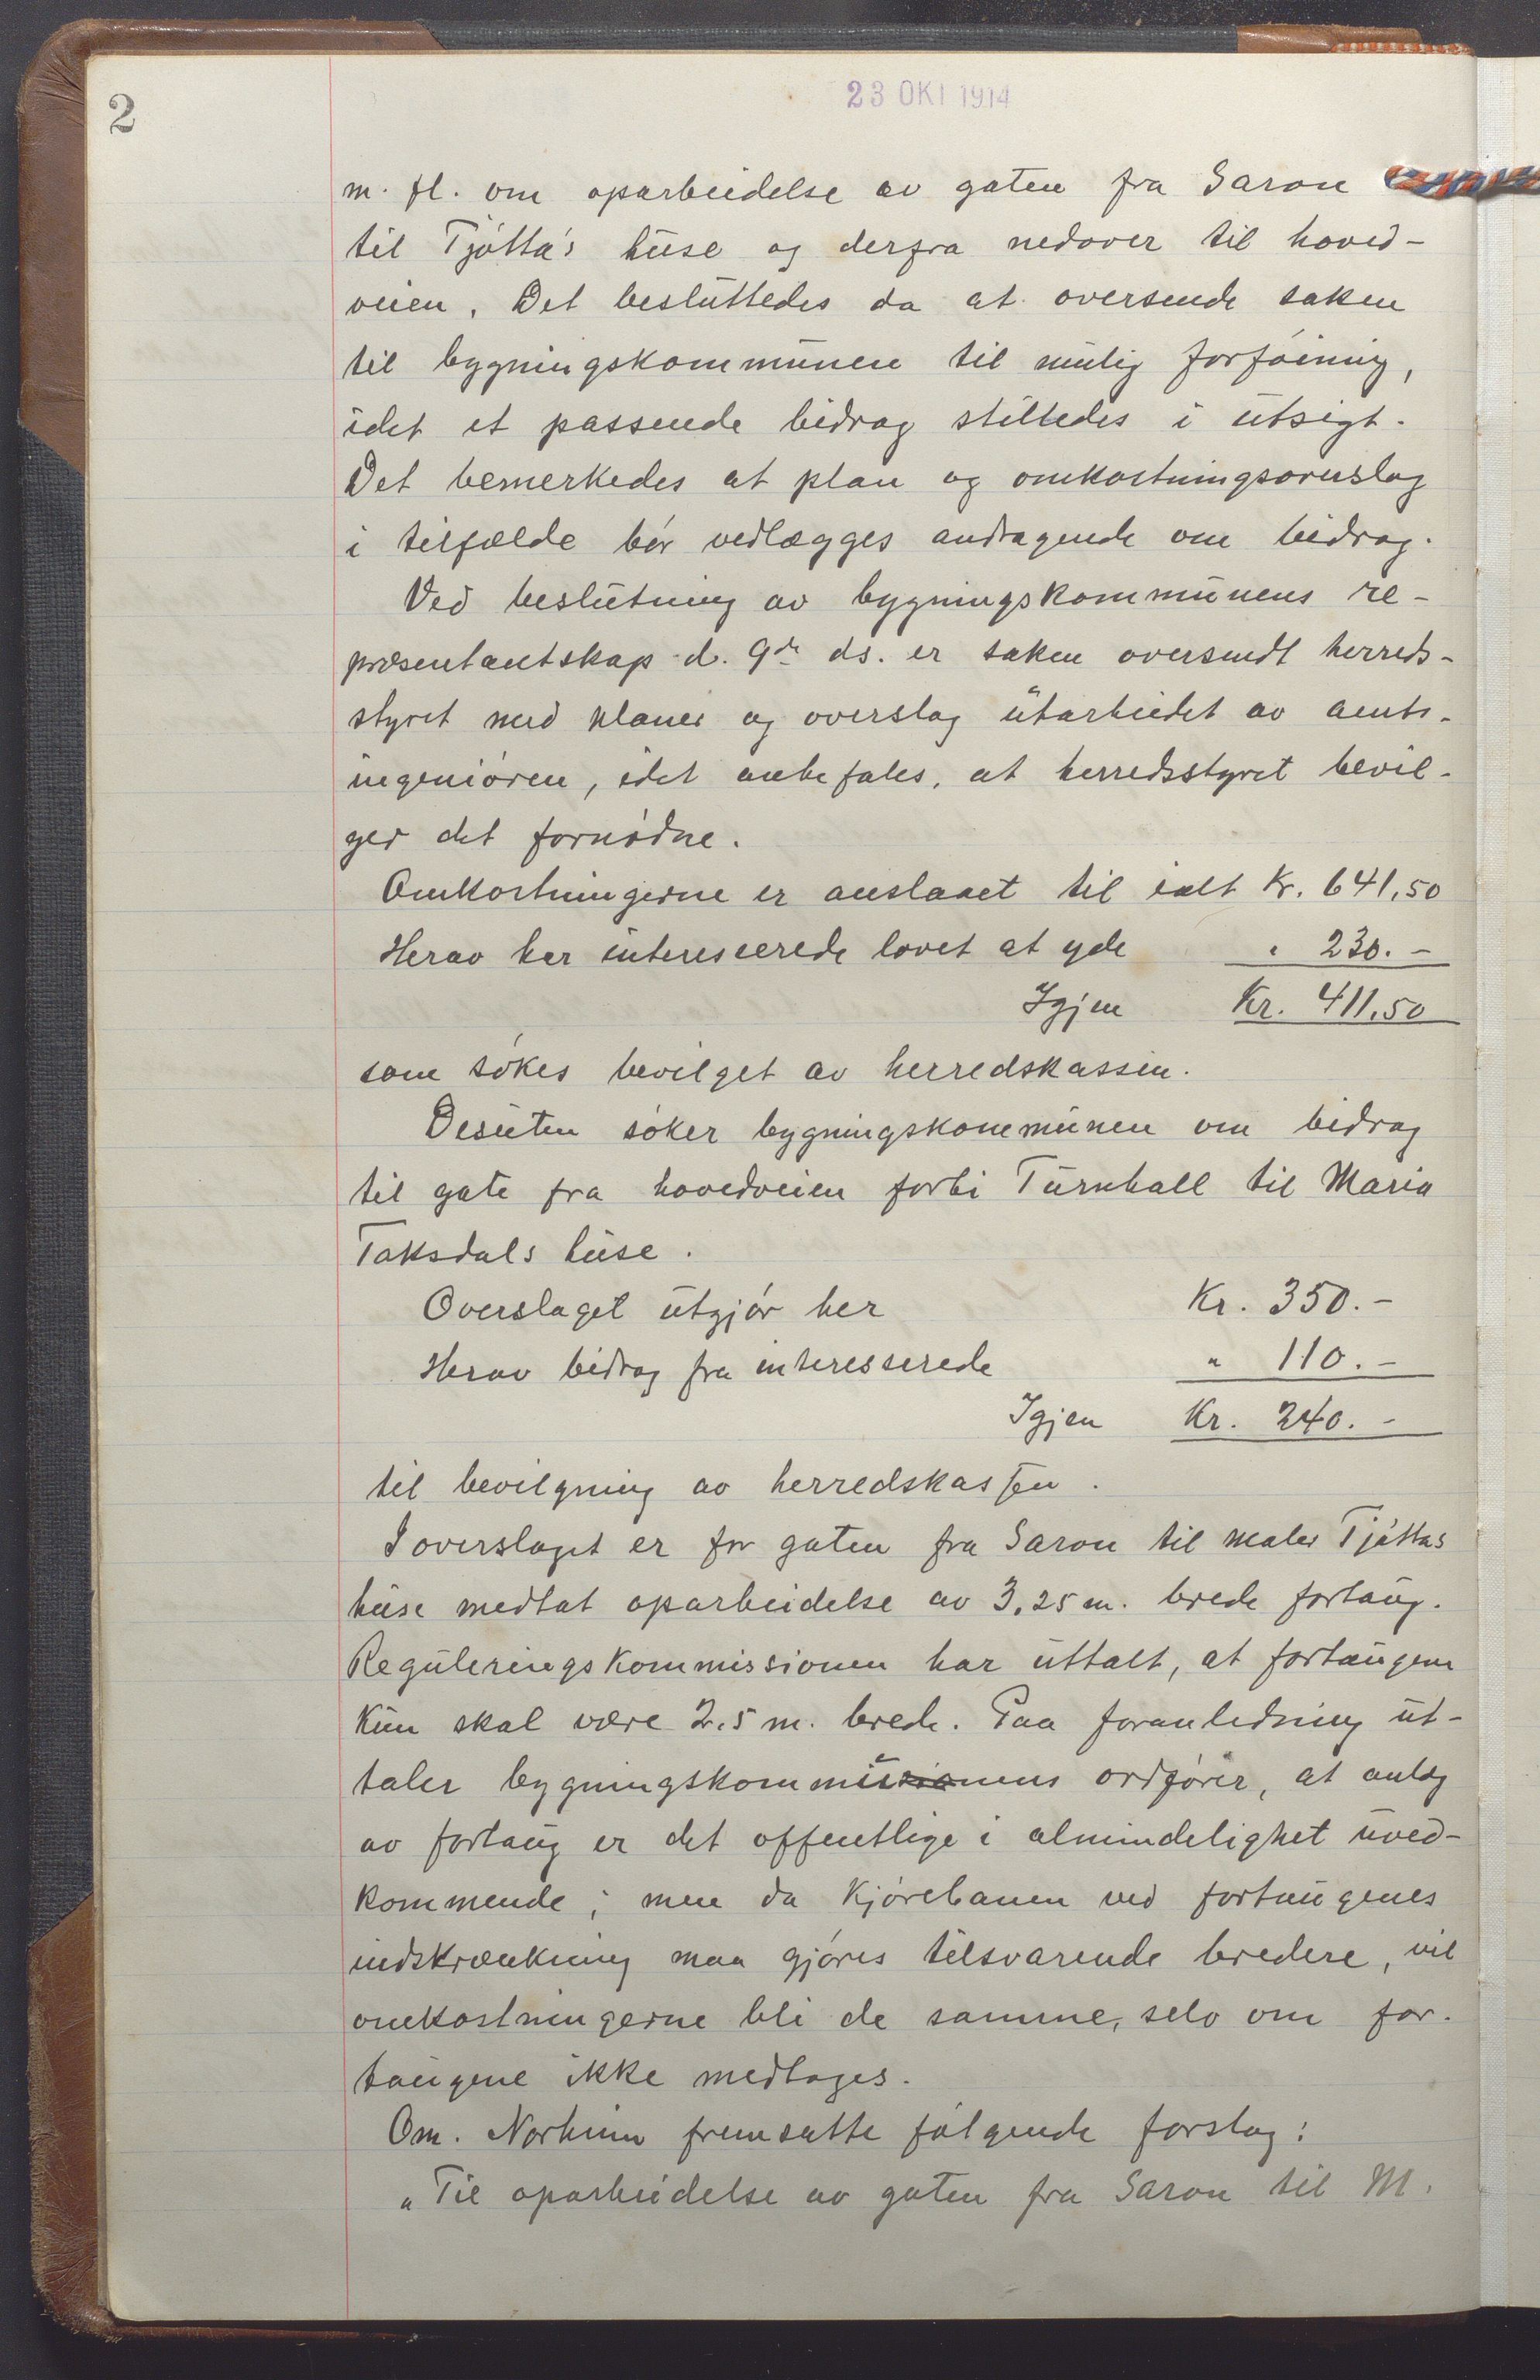 2
23 OKT 1914
m. fl. om oparbeidelse av gaten fra Saron
til Tjøtta's huse og derfra nedover til hoved-
veien. Det besluttedes da at oversende saken
til bygningskommunen til mulig forføining,
idet et passende bidrag stilledes i utsigt.
Det bemerkedes at plan og omkostningsoverslag
i tilfælde bør vedlægges andragende om bidrag.
Ved beslutning av bygningskommunens re-
præsentantskap d. 9de ds. er saken oversendt herreds-
styret med planer og overslag utarbeidet av amts-
ingeniøren, idet anbefales, at herredsstyret bevil-
ger det fornødne.
Omkostningerne er anslaaet til ialt Kr. 641,50
Herav har interesserede lovet at yde " 230.-
Igjen Kr. 411,50
som søkes bevilget av herredskassen.
Desuten søker bygningskommunen om bidrag
til gate fra hovedveien forbi Turnhall til Maria
Taksdals huse.
Overslaget utgjør her Kr. 350.-
Herav bidrag fra interesserede " 110.-
Igjen Kr. 240.-
til bevilgning av herredskassen.
I overslaget er for gaten fra Saron til maler Tjøttas
huse medtat oparbeidelse av 3,25 m. brede fortaug.
Reguleringskommissionen har uttalt, at fortaugene
kun skal være 2,5 m. brede. Paa foranledning ut-
taler bygningskommunens ordfører, at anlæg
av fortaug er det offentlige i almindelighet uved-
kommende; men da kjørebanen ved fortaugenes
indskrænkning maa gjøres tilsvarende bredere, vil
omkostningerne bli de samme, selv om for-
taugene ikke medtages.
Om. Norheim fremsatte følgende forslag:
"Til oparbeidelse av gaten fra Saron til M.